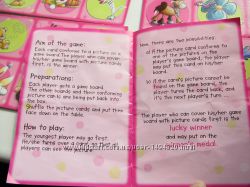 Aim of the game:
Each card conformed to picture on a
game board. The player who can cover
his/her game board with picture cards
first, is the winner.
Preparations:
Each player gets a game board.
The other boards and their conforming
picture cards are being put back into
the box.
Shuffle the picture cards and put them
face down on the table.
How to play:
The youngest player may go first.
He/she turns over
players can see
Now, there are two possibilities:
a) if the picture card conforms to
one of the pictures on the
player's game board, the player
may put this card on his/her
board.
b) if the card's picture cannot
be found on the game board, the
player turns the card back, and
it's the next player's turn
The player who can cover his/her game board
with picture cards first is the
lucky winner
and may put on the
medal.